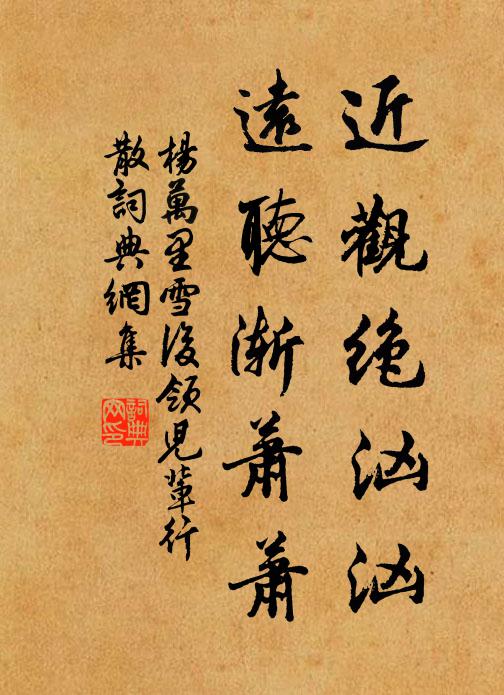 近觀絶汹汹
遠聽漸蕭蕭
楊萬里雪後領兒輩行
散詞典網集
詞典網印